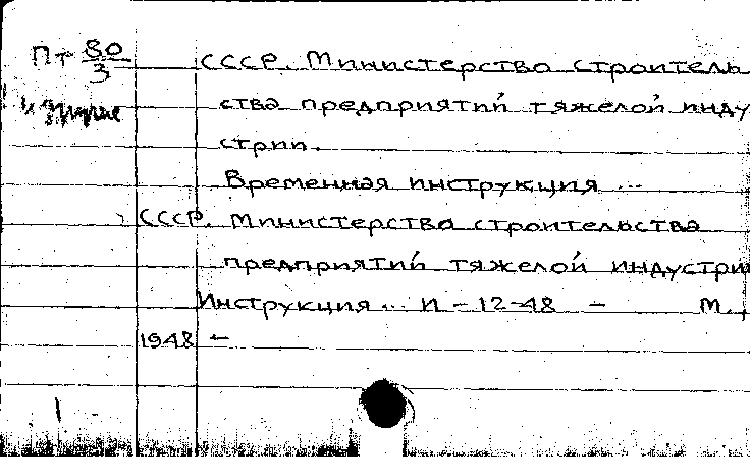 Пт 80/3 СССР. Министерство строитель
и другие
ства предприятий тяжелой инду
стрии.
Временная инструкция ...
СССР. Министерство строительства
предприятий тяжелой индустрии
Инструкция ... И-12-48 – М.,
1948 –
1